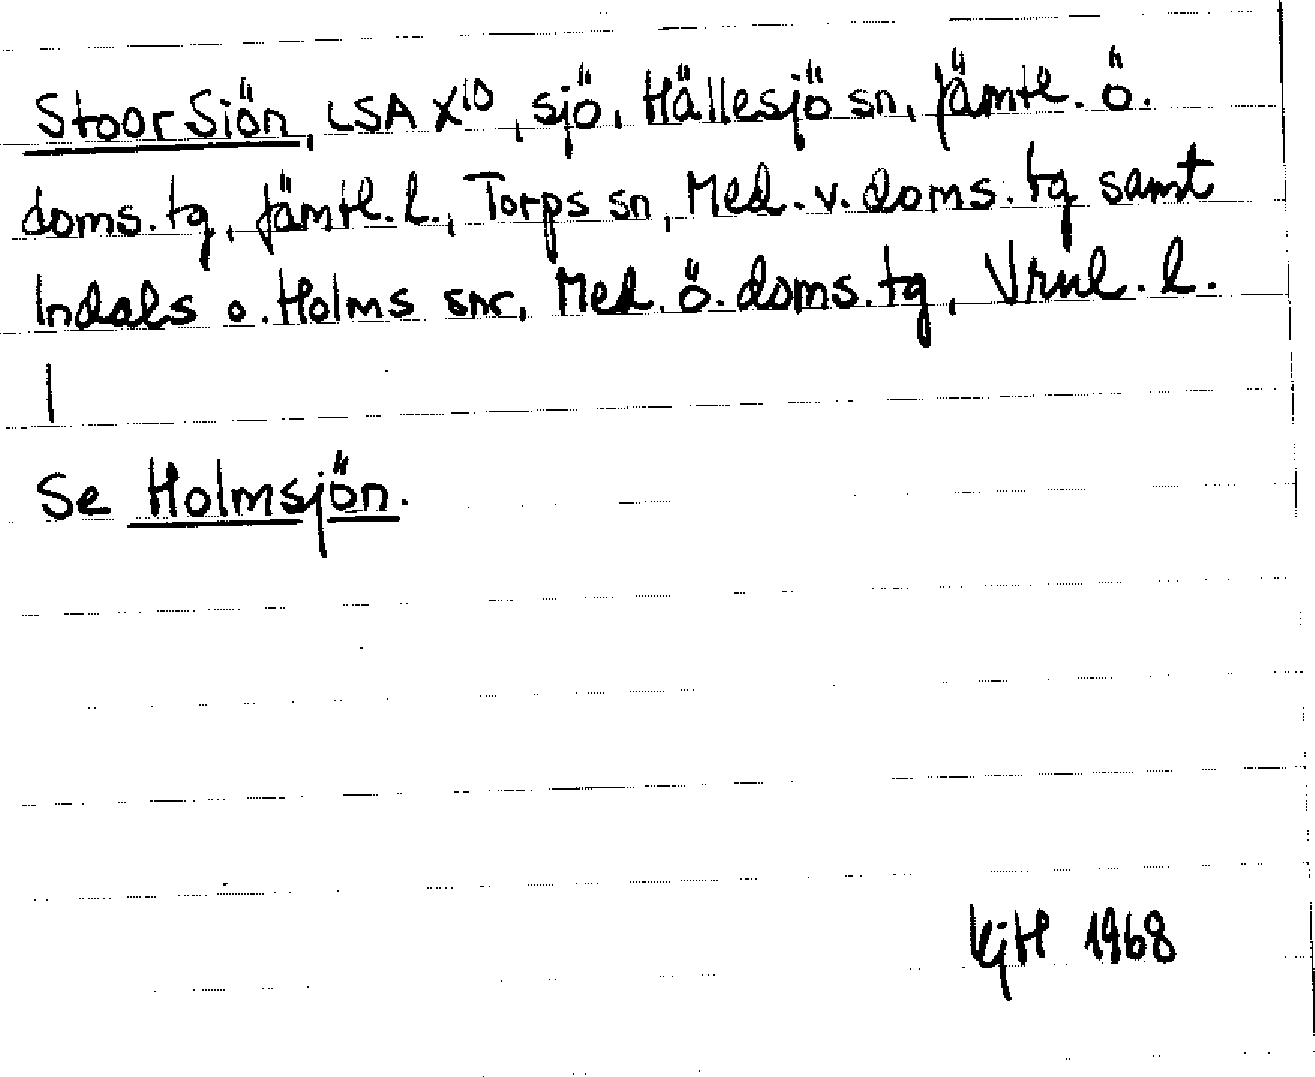 Stoor Siön, LSA X10, sjö, Hällesjö sn, Jämtl. ö.
doms. tg, Jämtl. l., Torps sn, Med. v. doms. tg samt
Indals o. Holms snr, Med. ö. doms. tg, Vrnl. l.
|
Se Holmsjön.
KjH 1968